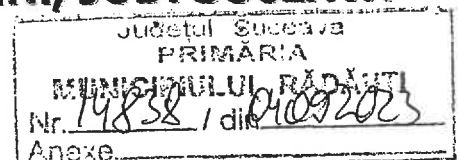 Judeţul Suceava
PRIMĂRIA
MUNICIPIULUI RĂDĂUŢI
Nr. 14838 / din 04092023
Anexe